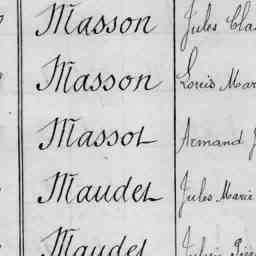 Masson Jules
Masson Louis
Massot Armand
Maudet Jules Marie
Maudet